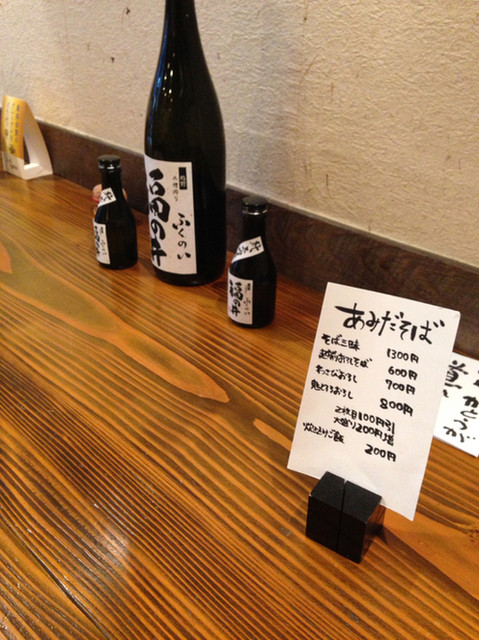 福の井
ふくのい
福の井
あみだそば
そば三昧 1300円
越前おろしそば 600円
わさびおろし 700円
鬼とろおろし 800円
2枚目100円引
大盛り200円増
炊き込みご飯
200円
かとうが